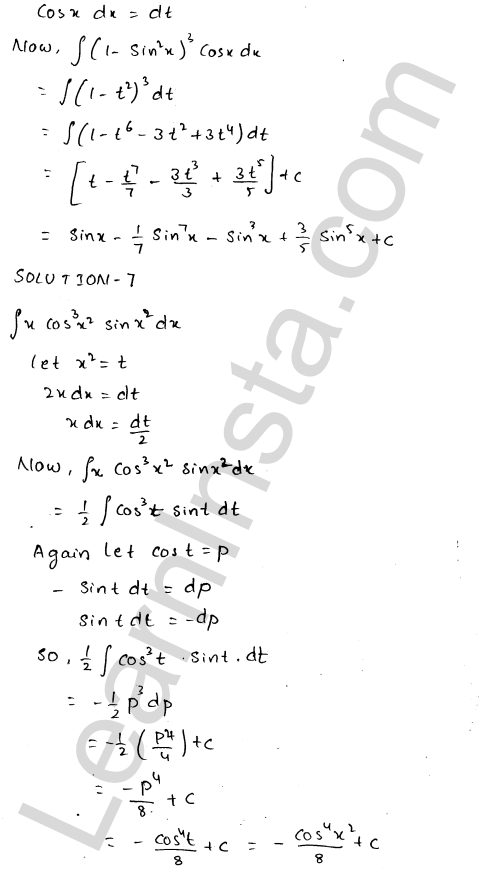 cosx dx = dt
Now, ∫(1- sin²x)³ cosx dx
= ∫(1-t²)³ dt
= ∫(1-t⁶-3t²+3t⁴)dt
= [t - t⁷/7 - 3t³/3 + 3t⁵/5]+c
= sinx - 1/7 sin⁷x - sin³x + 3/5 sin⁵x + c
SOLUTION-7
∫x cos³x² sinx² dx
let x² = t
2x dx = dt
x dx = dt/2
Now, ∫x cos³x² sinx² dx
= 1/2 ∫cos³t sint dt
Again let cost = p
- sint dt = dp
sint dt = -dp
So, 1/2 ∫cos³t . sint . dt
= -1/2 p³ dp
= -1/2 (p⁴/4) + c
= -p⁴/8 + c
= - cos⁴t/8 + c = - cos⁴x²/8 + c
LearnInsta.com